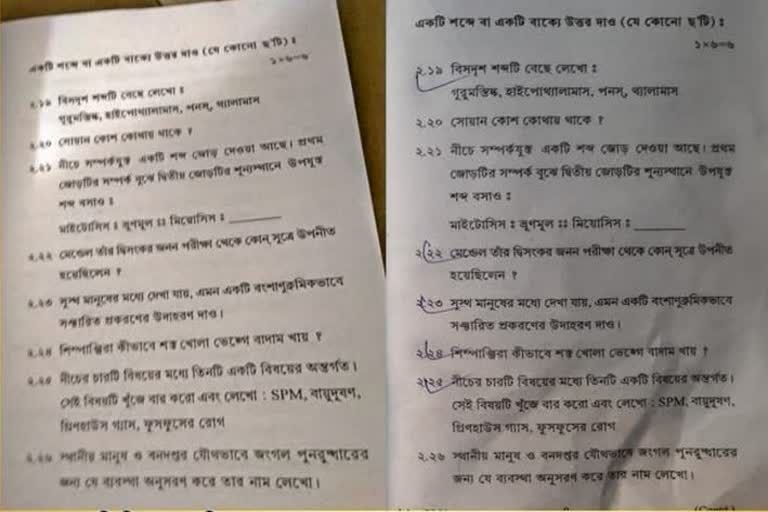 একটি শব্দে বা একটি বাক্যে উত্তর দাও (যে কোনো ছ'টি) :
১×৬=৬
২.১৯ বিসদৃশ শব্দটি বেছে লেখো :
গুরুমস্তিষ্ক, হাইপোথ্যালামাস, পনস্, থ্যালামাস
২.২০ সোয়ান কোশ কোথায় থাকে ?
২.২১ নীচে সম্পর্কযুক্ত একটি শব্দ জোড় দেওয়া আছে। প্রথম
জোড়টির সম্পর্ক বুঝে দ্বিতীয় জোড়টির শূন্যস্থানে উপযুক্ত
শব্দ বসাও :
মাইটোসিস : ভ্রূণমূল :: মিয়োসিস : ________
২.২২ মেন্ডেল তাঁর দ্বিসংকর জনন পরীক্ষা থেকে কোন্ সূত্রে উপনীত
হয়েছিলেন ?
২.২৩ সুস্থ মানুষের মধ্যে দেখা যায়, এমন একটি বংশাণুক্রমিকভাবে
সঞ্চারিত প্রকরণের উদাহরণ দাও।
২.২৪ শিম্পাঞ্জিরা কীভাবে শক্ত খোলা ভেঙ্গে বাদাম খায় ?
২.২৫ নীচের চারটি বিষয়ের মধ্যে তিনটি একটি বিষয়ের অন্তর্গত।
সেই বিষয়টি খুঁজে বার করো এবং লেখো : SPM, বায়ুদূষণ,
গ্রিণহাউস গ্যাস, ফুসফুসের রোগ
২.২৬ স্থানীয় মানুষ ও বনদপ্তর যৌথভাবে জংগল পুনরুদ্ধারের
জন্য যে ব্যবস্থা অনুসরণ করে তার নাম লেখো।
একটি শব্দে বা একটি বাক্যে উত্তর দাও (যে কোনো ছ'টি) :
১×৬=৬
২.১৯ বিসদৃশ শব্দটি বেছে লেখো :
গুরুমস্তিষ্ক, হাইপোথ্যালামাস, পনস্, থ্যালামাস
২.২০ সোয়ান কোশ কোথায় থাকে ?
২.২১ নীচে সম্পর্কযুক্ত একটি শব্দ জোড় দেওয়া আছে। প্রথম
জোড়টির সম্পর্ক বুঝে দ্বিতীয় জোড়টির শূন্যস্থানে উপযুক্ত
শব্দ বসাও :
মাইটোসিস : ভ্রূণমূল :: মিয়োসিস : ________
২.২২ মেন্ডেল তাঁর দ্বিসংকর জনন পরীক্ষা থেকে কোন্ সূত্রে উপনীত
হয়েছিলেন ?
২.২৩ সুস্থ মানুষের মধ্যে দেখা যায়, এমন একটি বংশাণুক্রমিকভাবে
সঞ্চারিত প্রকরণের উদাহরণ দাও।
২.২৪ শিম্পাঞ্জিরা কীভাবে শক্ত খোলা ভেঙ্গে বাদাম খায় ?
২.২৫ নীচের চারটি বিষয়ের মধ্যে তিনটি একটি বিষয়ের অন্তর্গত।
সেই বিষয়টি খুঁজে বার করো এবং লেখো : SPM, বায়ুদূষণ,
গ্রিণহাউস গ্যাস, ফুসফুসের রোগ
২.২৬ স্থানীয় মানুষ ও বনদপ্তর যৌথভাবে জংগল পুনরুদ্ধারের
জন্য যে ব্যবস্থা অনুসরণ করে তার নাম লেখো।